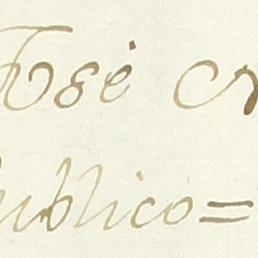 José
publico =